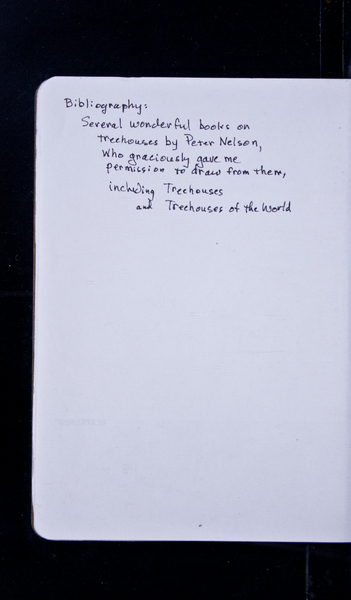 Bibliography:
Several wonderful books on
treehouses by Peter Nelson,
who graciously gave me
permission to draw from them,
including Treehouses
and Treehouses of the World